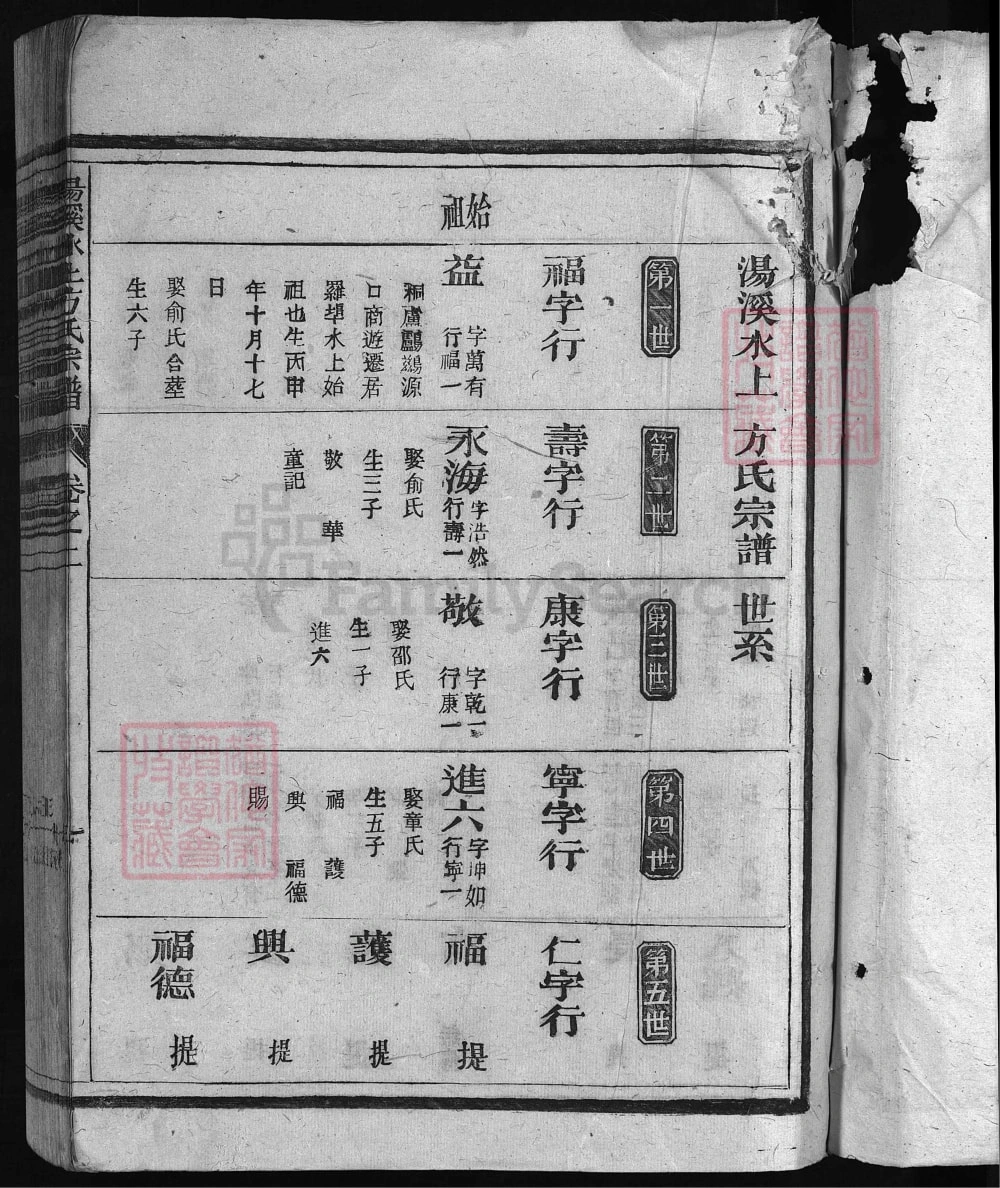 湯溪水上方氏宗譜世系
始祖
第一世
福字行
益
字萬有
行福一
桐廬鸕鶿源
口商遊遷居
羅埠水上始
祖也生丙申
年十月十七
日
娶俞氏合塟
生六子
第二世
壽字行
永海
字浩然
行壽一
娶俞氏
生三子
敬 華
童記
第三世
康字行
敬
字乾一
行康一
娶邵氏
生一子
進六
第四世
寧字行
進六
字坤如
行寧一
娶童氏
生五子
福 護
興 福德
賜
第五世
仁字行
福 提
護 提
興 提
福德 提
湯溪水上方氏宗譜 卷之二
FamilySearch